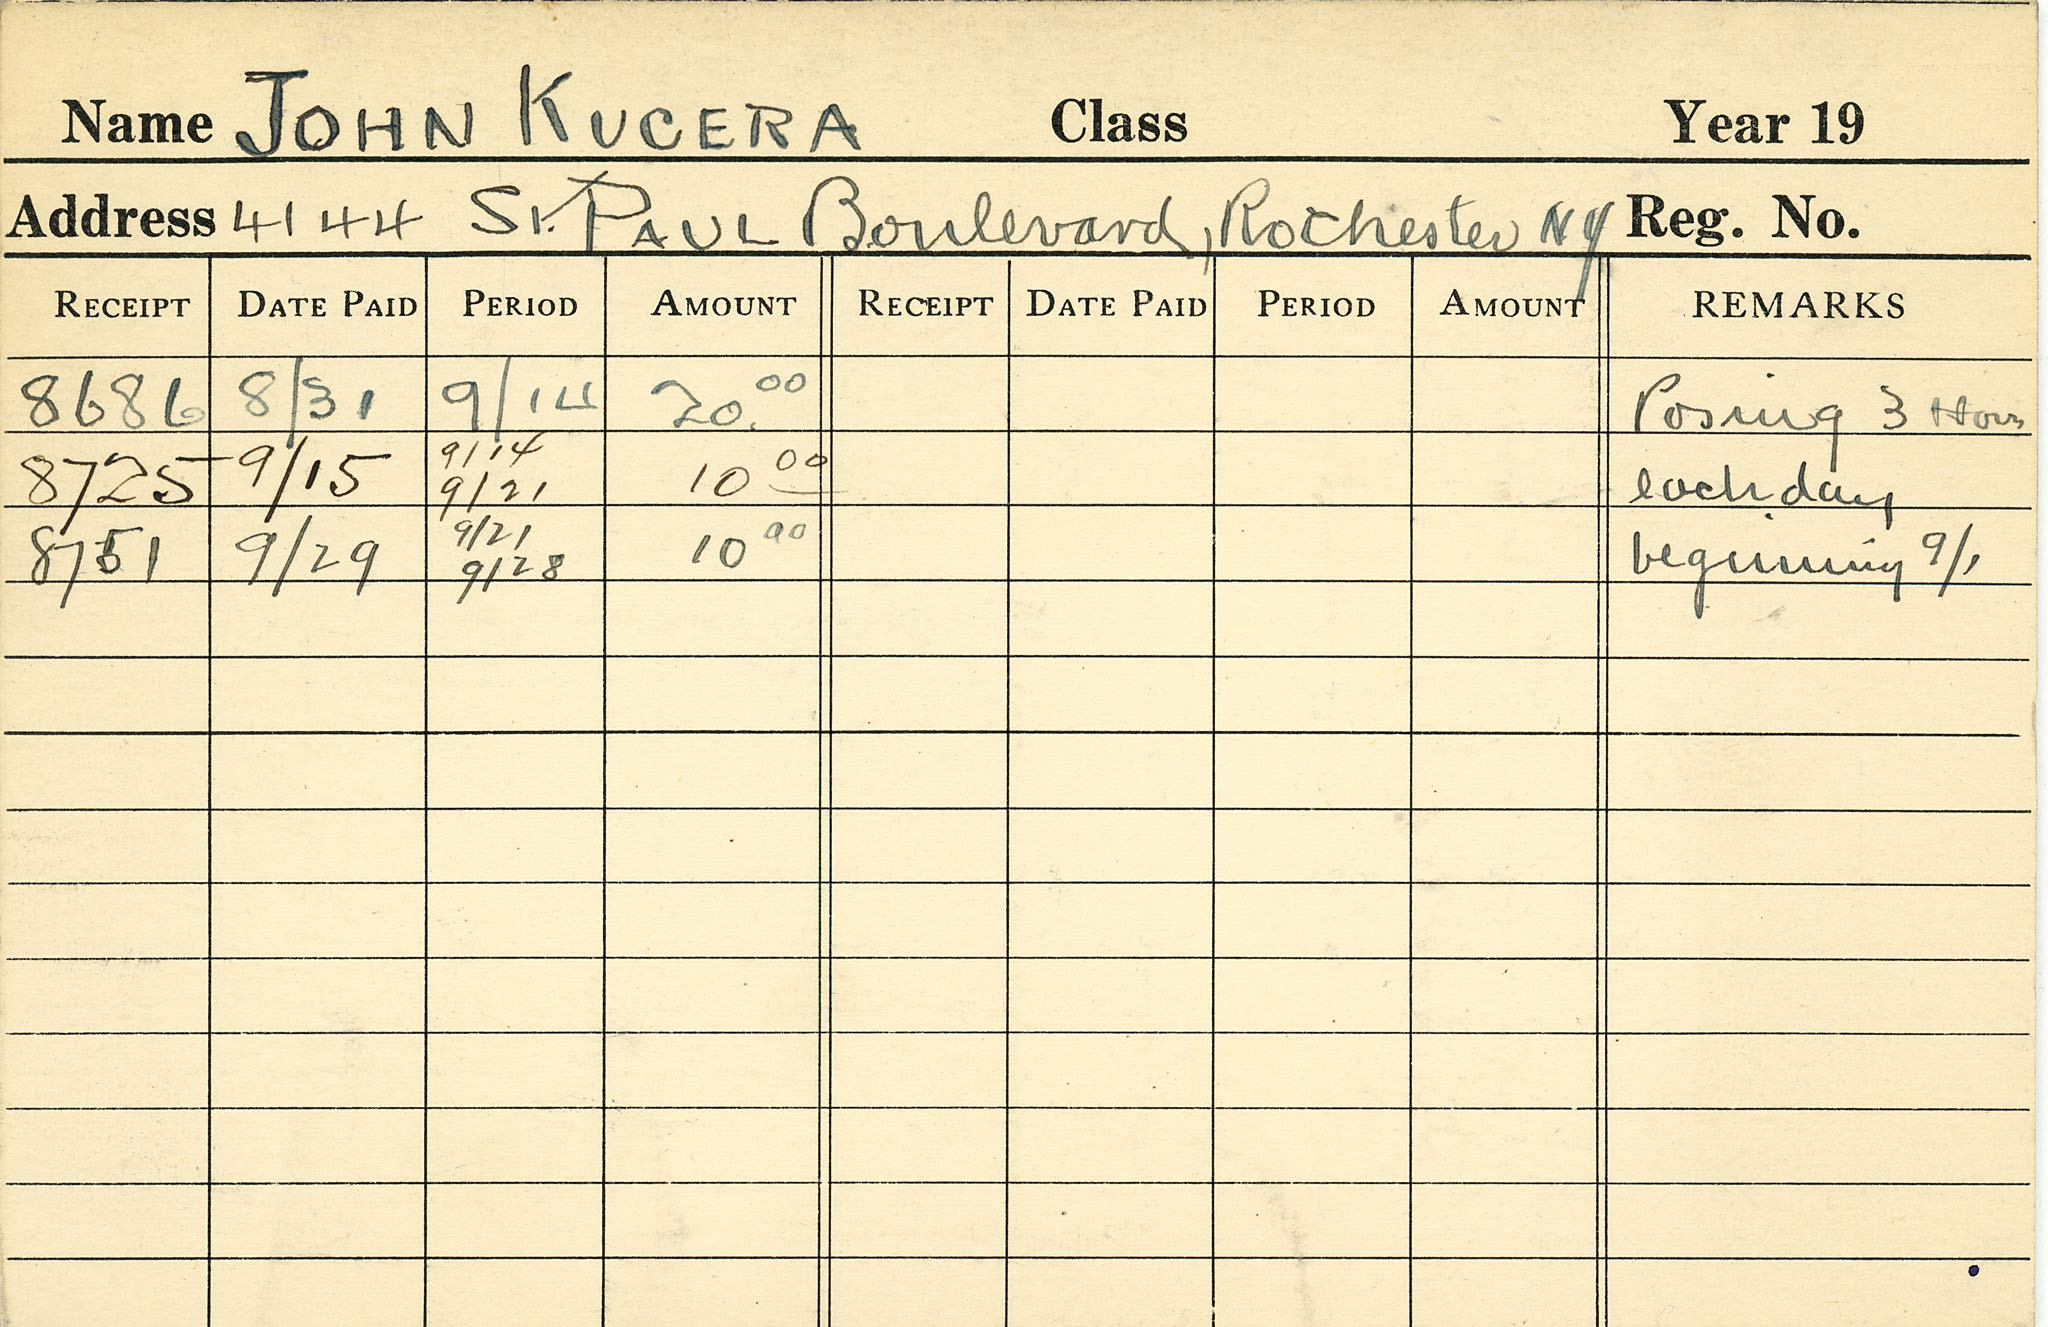 Name JOHN KUCERA Class Year 19
Address 4144 St. PAUL Boulevard, Rochester NY Reg. No.
RECEIPT DATE PAID PERIOD AMOUNT RECEIPT DATE PAID PERIOD AMOUNT REMARKS
8686 8/31 9/14 20.00 Posing 3 Hours
8725 9/15 9/14 9/21 10 00 each day
8751 9/29 9/21 9/28 10 00 beginning 9/1